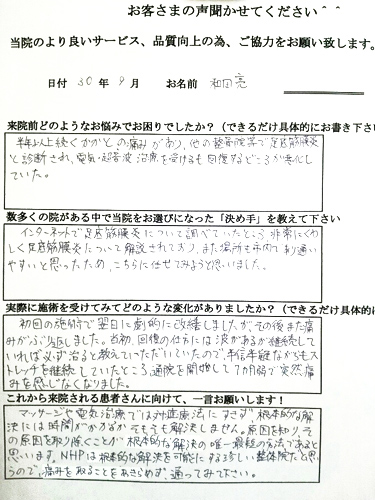 お客さまの声聞かせてください＾＾
当院のより良いサービス、品質向上の為、ご協力をお願い致します。
日付 30年9月 お名前 和田亮
来院前どのようなお悩みでお困りでしたか？（できるだけ具体的にお書き下さい
半年以上続くかかとの痛みがあり、他の整骨院等で足底筋膜炎
と診断され、電気・超音波治療を受けるも回復するどころか悪化し
ていた。
数多くの院がある中で当院をお選びになった「決め手」を教えて下さい
インターネットで足底筋膜炎について調べていたところ、非常にくわ
しく足底筋膜炎について解説されており、また場所も市内であり通い
やすいと思ったため、こちらに任せてみようと思いました。
実際に施術を受けてみてどのような変化がありましたか？（できるだけ具体的に
初回の施術で翌日に劇的に改善しましたが、その後また痛
みがぶり返しました。当初、回復の仕方には波があるが継続して
いれば必ず治ると教えていただいていたので、半信半疑ながらも
ストレッチを継続していたところ、通院を開始して7か月弱で突然痛
みを感じなくなりました。
これから来院される患者さんに向けて、一言お願いします！
マッサージや電気治療では対症療法にすぎず根本的な解
決には時間がかかるかそもそも解決しません。原因を知り、そ
の原因を取り除くことが根本的な解決の唯一最短の方法であると
思います。NHPは根本的な解決を可能にする珍しい整体院だと思
うので、痛みを取ることをあきらめず、通ってみて下さい。